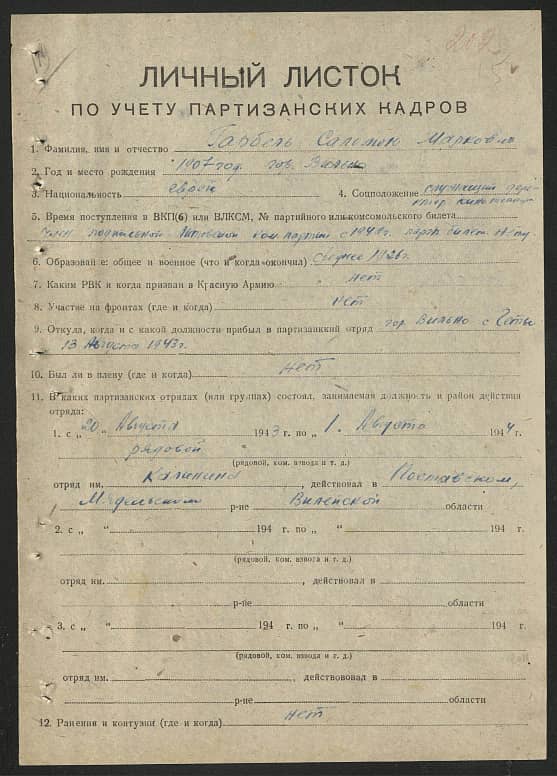 212
ЛИЧНЫЙ ЛИСТОК
ПО УЧЕТУ ПАРТИЗАНСКИХ КАДРОВ
1. Фамилия, имя и отчество Гарбель Марковна
2. Год и место рождения 1907 год. гор. Вильно
3. Национальность еврей 4. Соцположение служащий
5. Время поступления в ВКП(б) или ВЛКСМ, № партийного или комсомольского билета
член подпольной компартии с парт. билет
6. Образование: общее и военное (что и когда окончил) среднее 1926 г.
7. Каким РВК и когда призван в Красную Армию нет
8. Участие на фронтах (где и когда) нет
9. Откуда, когда и с какой должности прибыл в партизанкий отряд гор. Вильно с Гетто
13 Августа 1943 г.
10. Был ли в плену (где и когда) нет
11. В каких партизанских отрядах (или группах) состоял, занимаемая должность и район действия
отряда:
1. с „20 Августа 1943 г. по „1. Августа 1944 г.
рядовой
(рядовой, ком. взвода и т. д.)
отряд им. Калинина, действовал в Поставском,
Мядельском р-не Вилейской области
2. с „ “ 194 г. по „ “ 194 г.
(рядовой, ком. взвога и т. д.)
отряд им. , действовал в
р-не области
3. с „ “ 194 г. по „ “ 194 г.
(рядовой, ком. взвода и т. д.)
отряд им. , действововал в
р-не области
12. Ранения и контузии (где и когда) нет